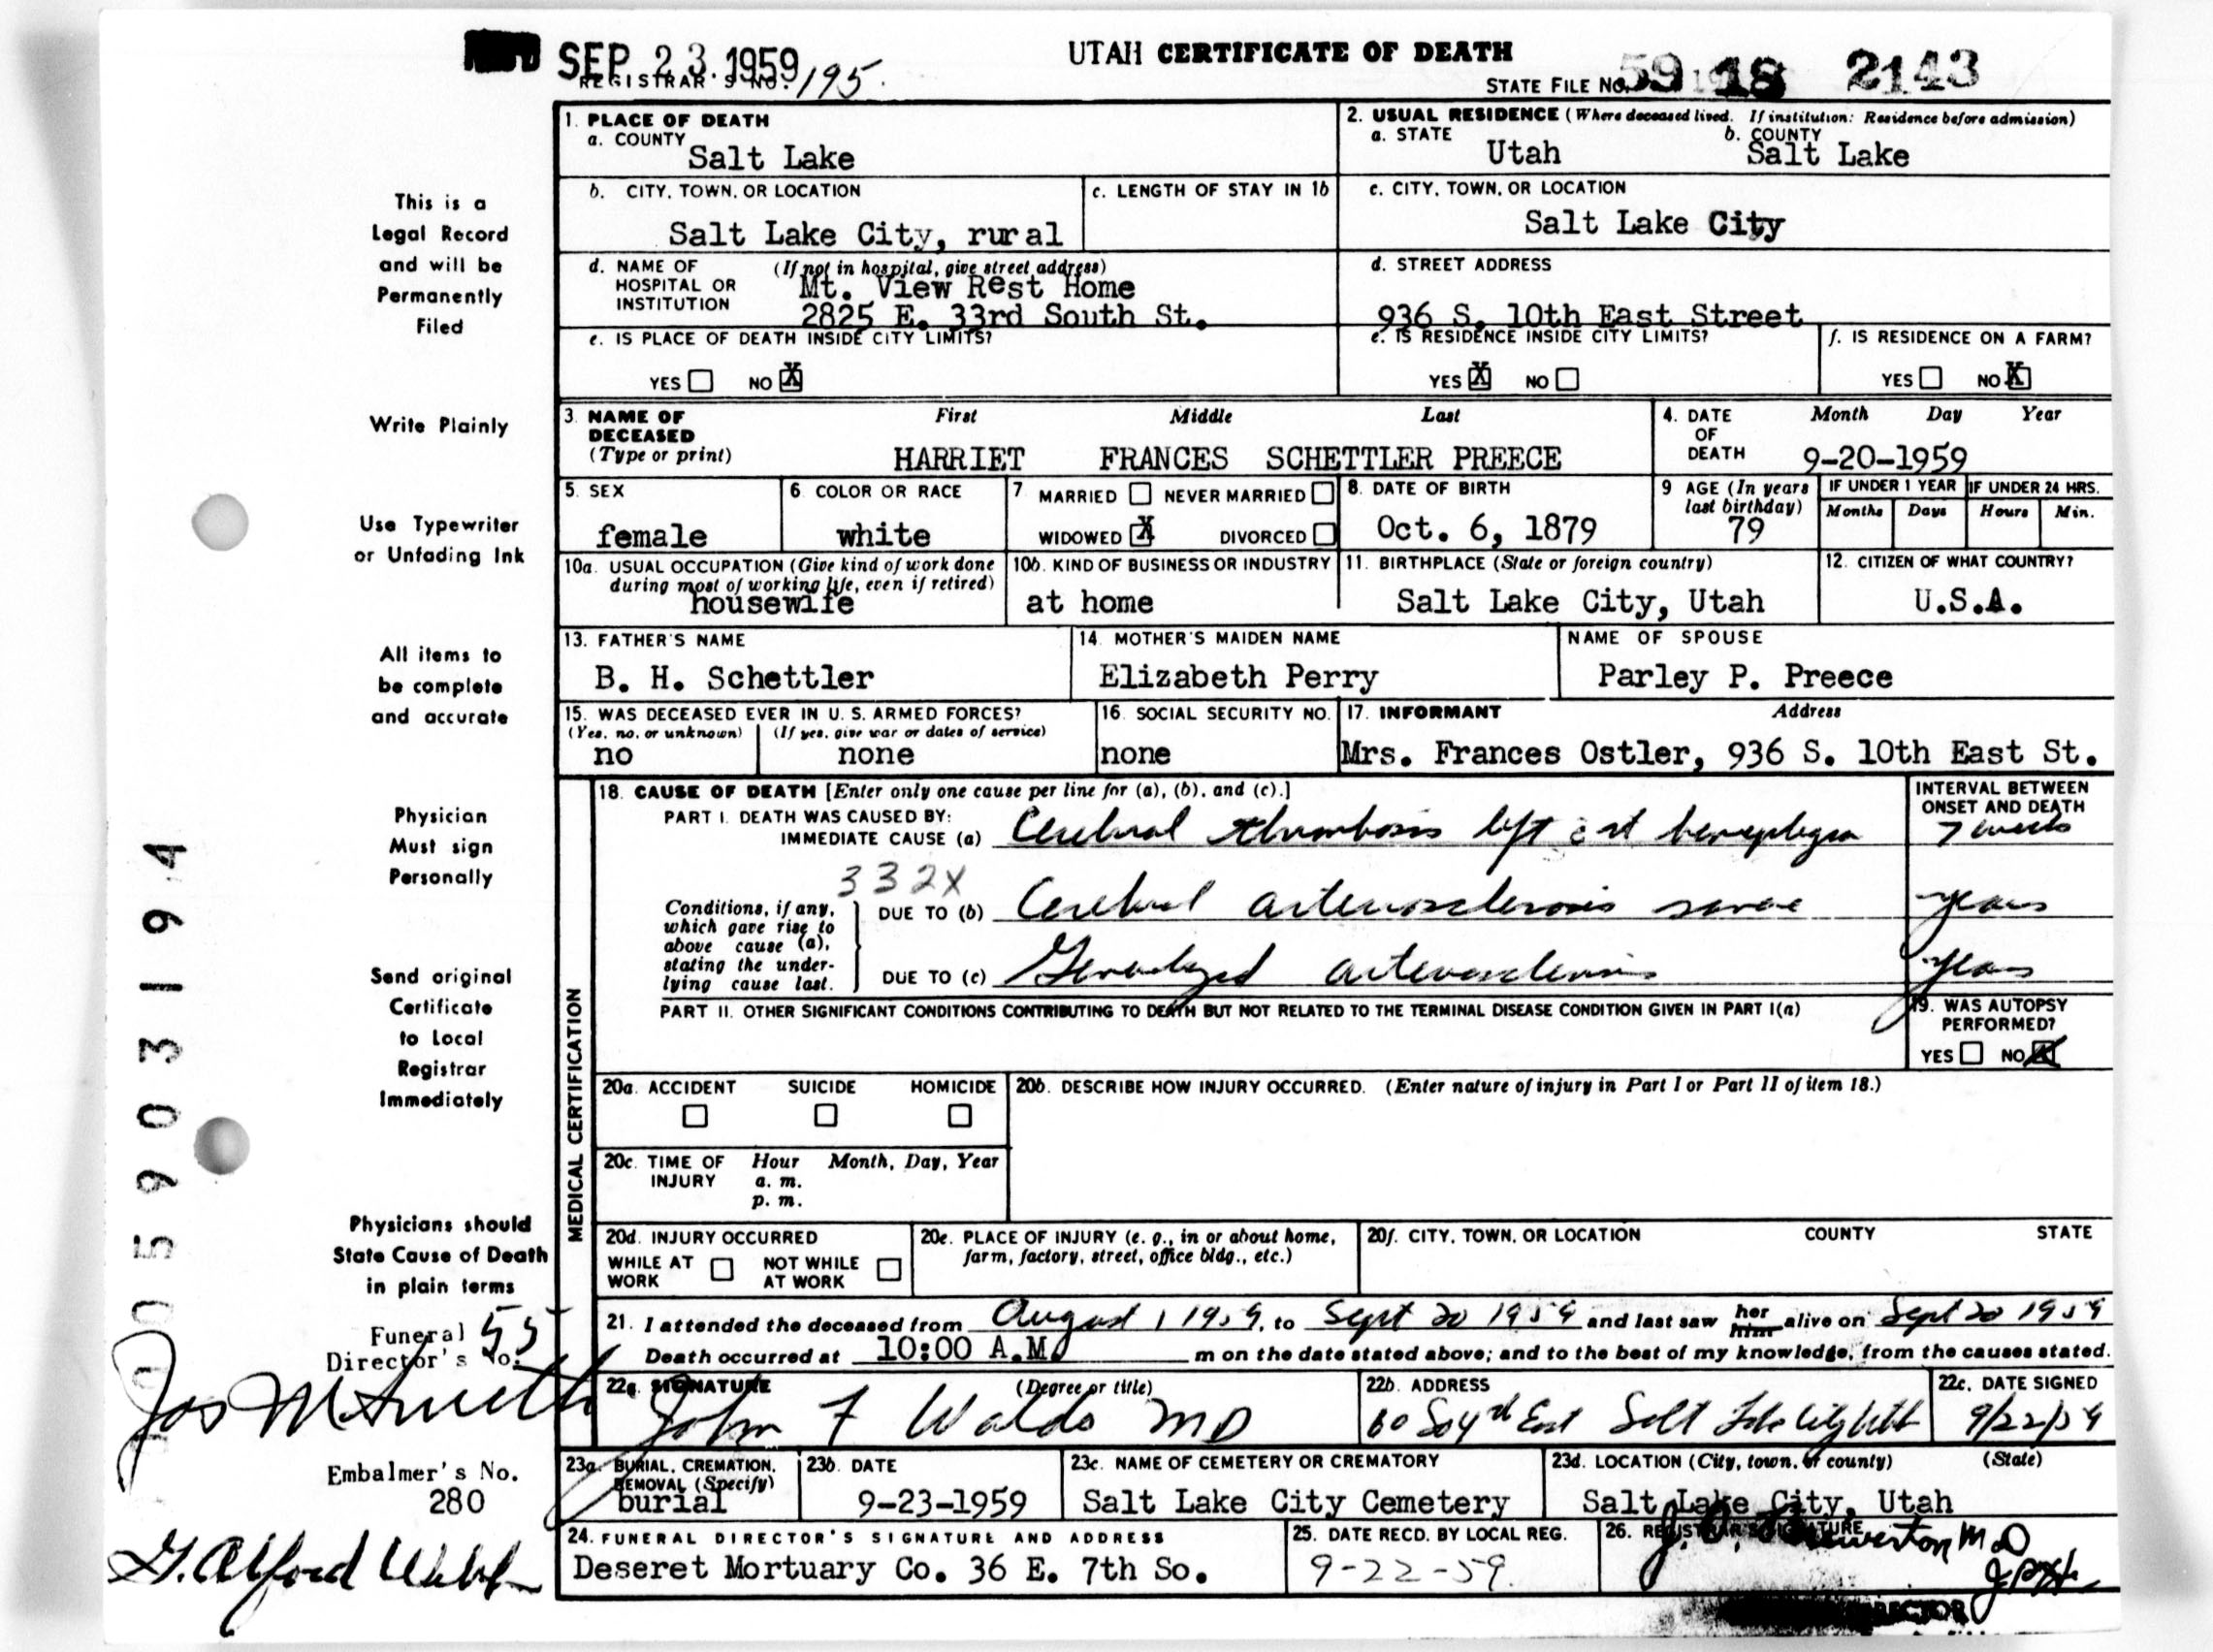 SEP 23 1959
UTAH CERTIFICATE OF DEATH
REGISTRAR'S NO. 195.
STATE FILE NO. 59 18 2143
1. PLACE OF DEATH
a. COUNTY
Salt Lake
2. USUAL RESIDENCE (Where deceased lived. If institution: Residence before admission)
a. STATE b. COUNTY
Utah Salt Lake
b. CITY, TOWN, OR LOCATION
Salt Lake City, rural
c. LENGTH OF STAY IN 1b
c. CITY, TOWN, OR LOCATION
Salt Lake City
d. NAME OF HOSPITAL OR INSTITUTION (If not in hospital, give street address)
Mt. View Rest Home
2825 E. 33rd South St.
d. STREET ADDRESS
936 S. 10th East Street
e. IS PLACE OF DEATH INSIDE CITY LIMITS?
YES NO X
e. IS RESIDENCE INSIDE CITY LIMITS?
YES X NO
f. IS RESIDENCE ON A FARM?
YES NO X
3. NAME OF DECEASED (Type or print)
First Middle Last
HARRIET FRANCES SCHETTLER PREECE
4. DATE OF DEATH Month Day Year
9-20-1959
5. SEX
female
6. COLOR OR RACE
white
7. MARRIED NEVER MARRIED
WIDOWED X DIVORCED
8. DATE OF BIRTH
Oct. 6, 1879
9. AGE (In years last birthday)
79
IF UNDER 1 YEAR IF UNDER 24 HRS.
Months Days Hours Min.
10a. USUAL OCCUPATION (Give kind of work done during most of working life, even if retired)
housewife
10b. KIND OF BUSINESS OR INDUSTRY
at home
11. BIRTHPLACE (State or foreign country)
Salt Lake City, Utah
12. CITIZEN OF WHAT COUNTRY?
U.S.A.
13. FATHER'S NAME
B. H. Schettler
14. MOTHER'S MAIDEN NAME
Elizabeth Perry
NAME OF SPOUSE
Parley P. Preece
15. WAS DECEASED EVER IN U. S. ARMED FORCES?
(Yes, no, or unknown) (If yes, give war or dates of service)
no none
16. SOCIAL SECURITY NO.
none
17. INFORMANT Address
Mrs. Frances Ostler, 936 S. 10th East St.
MEDICAL CERTIFICATION
18. CAUSE OF DEATH [Enter only one cause per line for (a), (b), and (c).]
INTERVAL BETWEEN ONSET AND DEATH
PART I. DEATH WAS CAUSED BY:
IMMEDIATE CAUSE (a) Cerebral thrombosis left hemiplegia 7 weeks
332X
Conditions, if any, which gave rise to above cause (a), stating the underlying cause last.
DUE TO (b) Cerebral arteriosclerosis severe years
DUE TO (c) Generalized arteriosclerosis years
PART II. OTHER SIGNIFICANT CONDITIONS CONTRIBUTING TO DEATH BUT NOT RELATED TO THE TERMINAL DISEASE CONDITION GIVEN IN PART I(a)
19. WAS AUTOPSY PERFORMED?
YES NO X
20a. ACCIDENT SUICIDE HOMICIDE
20b. DESCRIBE HOW INJURY OCCURRED. (Enter nature of injury in Part I or Part II of item 18.)
20c. TIME OF INJURY Hour Month, Day, Year
a. m.
p. m.
20d. INJURY OCCURRED
WHILE AT WORK NOT WHILE AT WORK
20e. PLACE OF INJURY (e. g., in or about home, farm, factory, street, office bldg., etc.)
20f. CITY, TOWN, OR LOCATION COUNTY STATE
21. I attended the deceased from August 1 1959, to Sept 20 1959 and last saw her him alive on Sept 20 1959
Death occurred at 10:00 A.M. m on the date stated above; and to the best of my knowledge, from the causes stated.
22a. SIGNATURE (Degree or title)
John F Waldo MD
22b. ADDRESS
60 So 4th East Salt Lake City Utah
22c. DATE SIGNED
9/22/59
23a. BURIAL, CREMATION, REMOVAL (Specify)
burial
23b. DATE
9-23-1959
23c. NAME OF CEMETERY OR CREMATORY
Salt Lake City Cemetery
23d. LOCATION (City, town, or county) (State)
Salt Lake City, Utah
24. FUNERAL DIRECTOR'S SIGNATURE AND ADDRESS
Deseret Mortuary Co. 36 E. 7th So.
25. DATE RECD. BY LOCAL REG.
9-22-59.
26. REGISTRAR'S SIGNATURE
This is a
Legal Record
and will be
Permanently
Filed
Write Plainly
Use Typewriter
or Unfading Ink
All items to
be complete
and accurate
Physician
Must sign
Personally
Send original
Certificate
to Local
Registrar
Immediately
Physicians should
State Cause of Death
in plain terms
Funeral
Director's No. 55
Jos M Smith
Embalmer's No.
280
G. Alford Webb